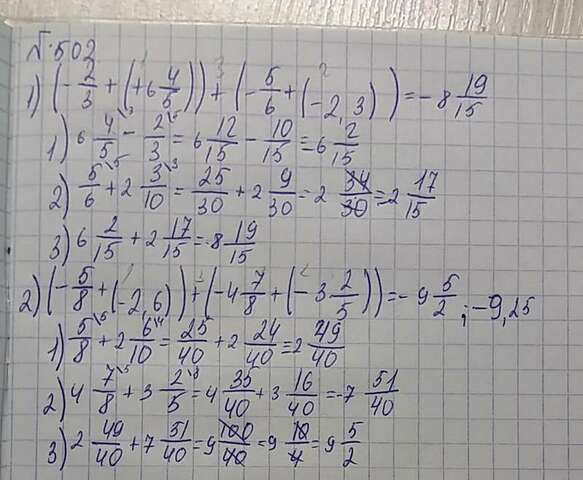 №502
1) (-2/3 + (+6 4/5)) + (-5/6 + (-2,3)) = -8 19/15
1) 6 4/5 - 2/3 = 6 12/15 - 10/15 = 6 2/15
2) 5/6 + 2 3/10 = 25/30 + 2 9/30 = 2 34/30 = 2 17/15
3) 6 2/15 + 2 17/15 = 8 19/15
2) (-5/8 + (-2,6)) + (-4 7/8 + (-3 2/5)) = -9 5/2; -9,25
1) 5/8 + 2 6/10 = 25/40 + 2 24/40 = 2 49/40
2) 4 7/8 + 3 2/5 = 4 35/40 + 3 16/40 = 7 51/40
3) 2 49/40 + 7 51/40 = 9 100/40 = 9 10/4 = 9 5/2